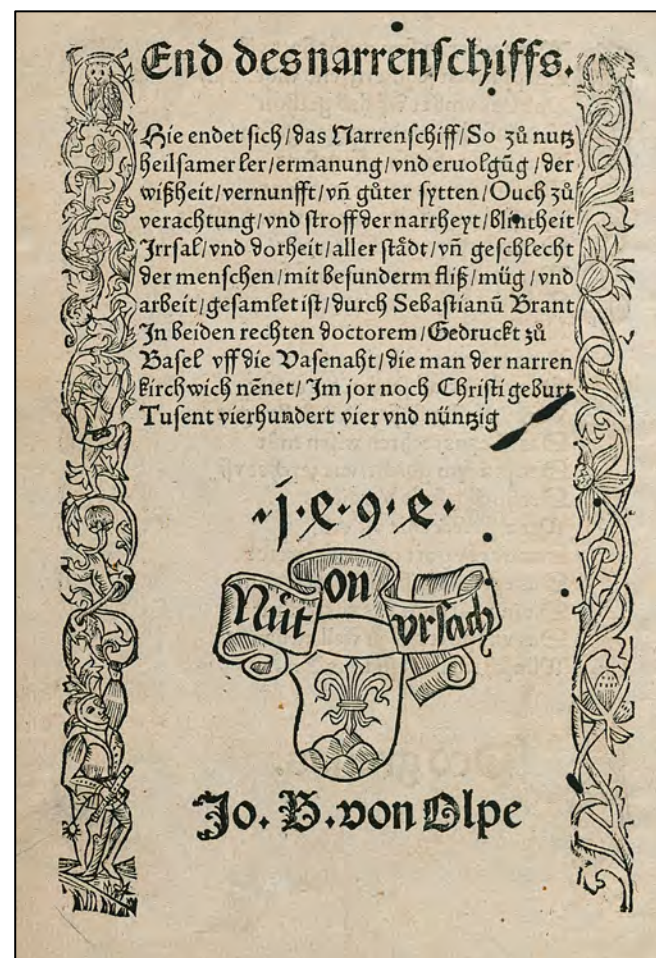 End des narrenſchiffs.
Hie endet ſich/das Narrenſchiff/So zů nutz
heilſamer ler/ermanung/vnd eruolgūg/der
wißheit/vernunfft/vn̄ gůter ſytten/Ouch zů
verachtung/vnd ſtroff der narrheyt/blintheit
Jrrſal/vnd dorheit/aller ſtådt/vn̄ geſchlecht
der menſchen/mit beſunderm fliß/müg/vnd
arbeit/geſamlet iſt/durch Sebaſtianū Brant
Jn beiden rechten doctorem/Gedruckt zů
Baſel vff die Vaſenaht/die man der narren
kirchwich nēnet/Jm jor noch Chriſti geburt
Tuſent vierhundert vier vnd nüntzig
.j.e.9.e.
Nüt on vrſach
Jo. B. von Olpe